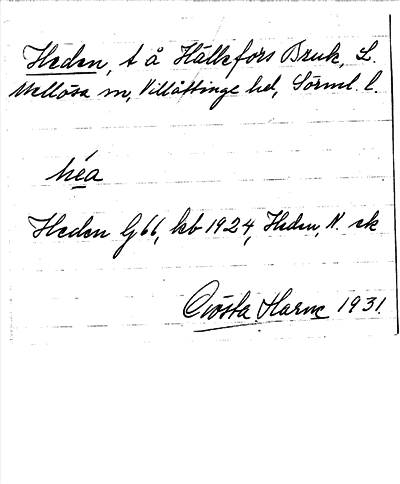 Heden, t å Hällefors Bruk, L.
Mellösa sn, Villåttinge hd, Sörml. l.
héa
Heden G66, kb 1924, Heden, N. ek
Gösta Harne 1931.